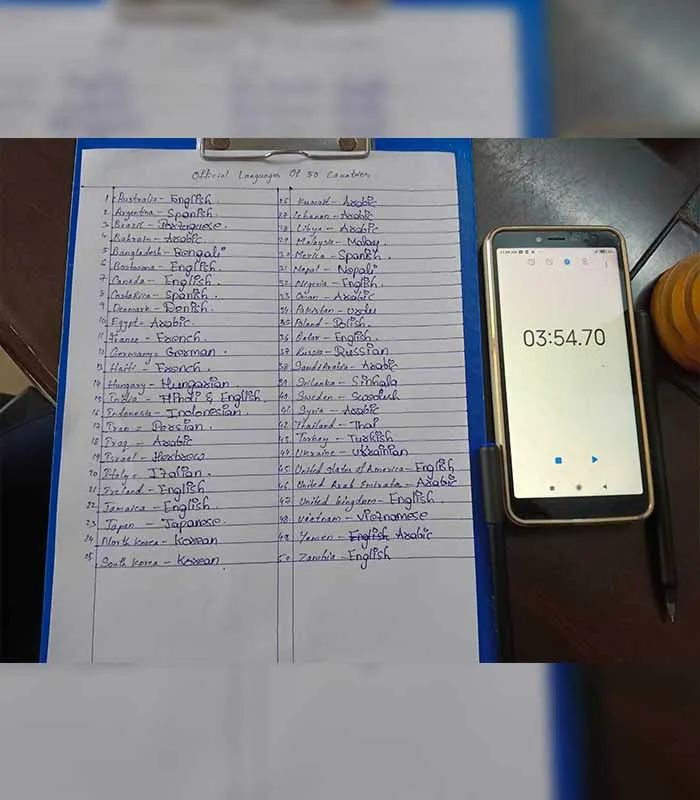 Official Languages Of 50 Countries
1 Australia - English.
2 Argentina - Spanish.
3 Brazil - Portuguese.
4 Bahrain - Arabic
5 Bangladesh - Bengali
6 Bostwana - English.
7 Canada - English.
8 Costa Rica - Spanish.
9 Denmark - Danish.
10 Egypt - Arabic
11 France - French.
12 Germany - German.
13 Haiti - French.
14 Hungary - Hungarian
15 India - Hindi & English.
16 Indonesia - Indonesian.
17 Iran - Persian.
18 Iraq - Arabic
19 Israel - Herbrew
20 Italy - Italian.
21 Ireland - English
22 Jamaica - English.
23 Japan - Japanese.
24 North Korea - Korean
25 South Korea - Korean
26 Kuwait - Arabic
27 Lebanon - Arabic
28 Libya - Arabic
29 Malaysia - Malay.
30 Mexico - Spanish.
31 Nepal - Nepali
32 Nigeria - English.
33 Oman - Arabic
34 Pakistan - Urdu
35 Poland - Polish.
36 Qatar - English.
37 Russia - Russian
38 Saudi Arabia - Arabic
39 Srilanka - Sinhala
40 Sweden - Swedish
41 Syria - Arabic
42 Thailand - Thai
43 Turkey - Turkish
44 Ukraine - Ukrainian
45 United States of America - English
46 United Arab Emirates - Arabic
47 United kingdom - English.
48 Vietnam - Vietnamese
49 Yemen - English Arabic
50 Zambia - English
03:54.70